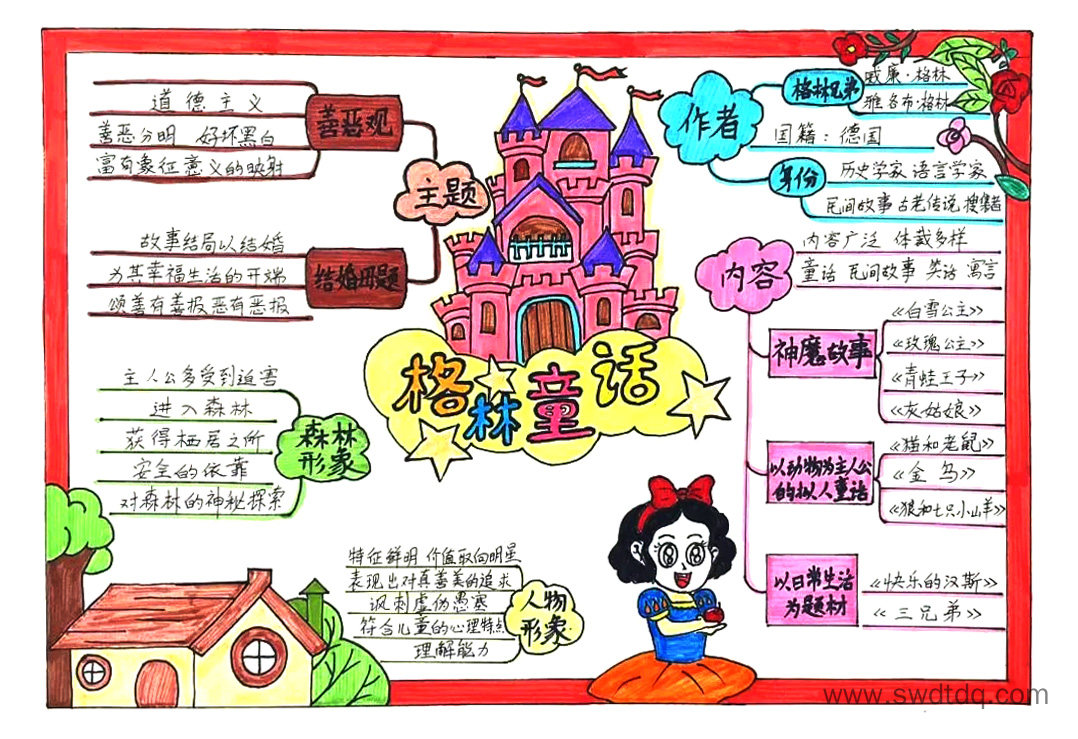 格林童话
作者
格林兄弟
威廉·格林
雅各布·格林
国籍：德国
身份
历史学家 语言学家
民间故事 古老传说 搜集者
主题
善恶观
道德主义
善恶分明 好坏黑白
富有象征意义的映射
结婚母题
故事结局以结婚
为其幸福生活的开端
颂善有善报恶有恶报
内容
内容广泛 体裁多样
童话 民间故事 笑话 寓言
神魔故事
《白雪公主》
《玫瑰公主》
《青蛙王子》
《灰姑娘》
以动物为主人公
的拟人童话
《猫和老鼠》
《金鸟》
《狼和七只小山羊》
以日常生活
为题材
《快乐的汉斯》
《三兄弟》
森林
形象
主人公多受到迫害
进入森林
获得栖居之所
安全的依靠
对森林的神秘探索
人物
形象
特征鲜明 价值取向明显
表现出对真善美的追求
讽刺虚伪愚蠢
符合儿童的心理特点
理解能力
www.swdtdq.com